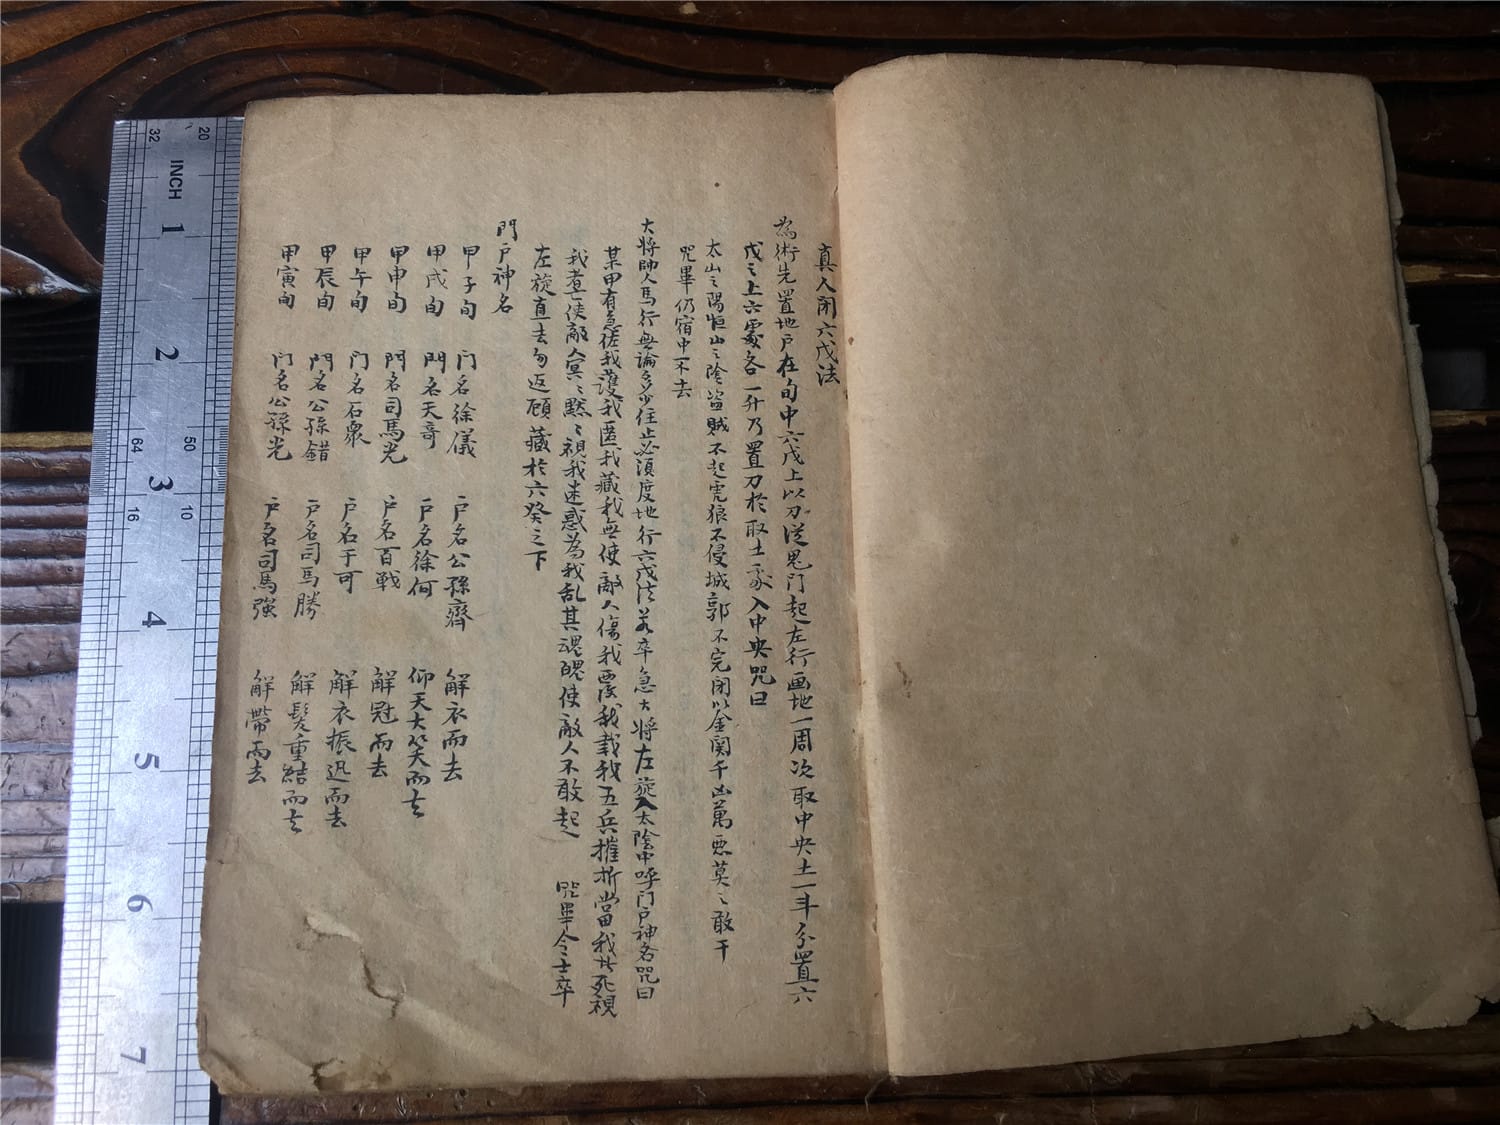 真人閉六戊法
為術先置地戶在旬中六戊上以刀從鬼門起左行画地一周次取中央土一斗分置六
戊之上六處各一升乃置刀於取土處入中央咒曰
太山之陽恒山之陰盜賊不起虎狼不侵城郭不完閉以金関千凶萬悪莫之敢干
咒畢仍宿中不去
大將帥人馬行無論多少住止必須度地行六戊法若卒急大將左旋入太陰中呼門戶神名咒曰
某甲有急佐我護我匿我藏我無使敵人傷我覆我載我五兵摧折當我者死視
我者使敵人冥冥黙黙視我迷惑為我乱其魂魄使敵人不敢起 咒畢令士卒
左旋直去勿返顧藏於六癸之下
門戶神名
甲子旬 门名徐儀 戶名公孫齊 解衣而去
甲戌旬 門名天奇 戶名徐何 仰天大笑而去
甲申旬 門名司馬光 戶名百戦 解冠而去
甲午旬 门名石衆 戶名于可 解衣振迅而去
甲辰旬 門名公孫錯 戶名司馬勝 解髮重結而去
甲寅旬 门名公孫光 戶名司馬強 解帶而去
INCH
1
2
3
4
5
6
7
32
20
64
50
16
10